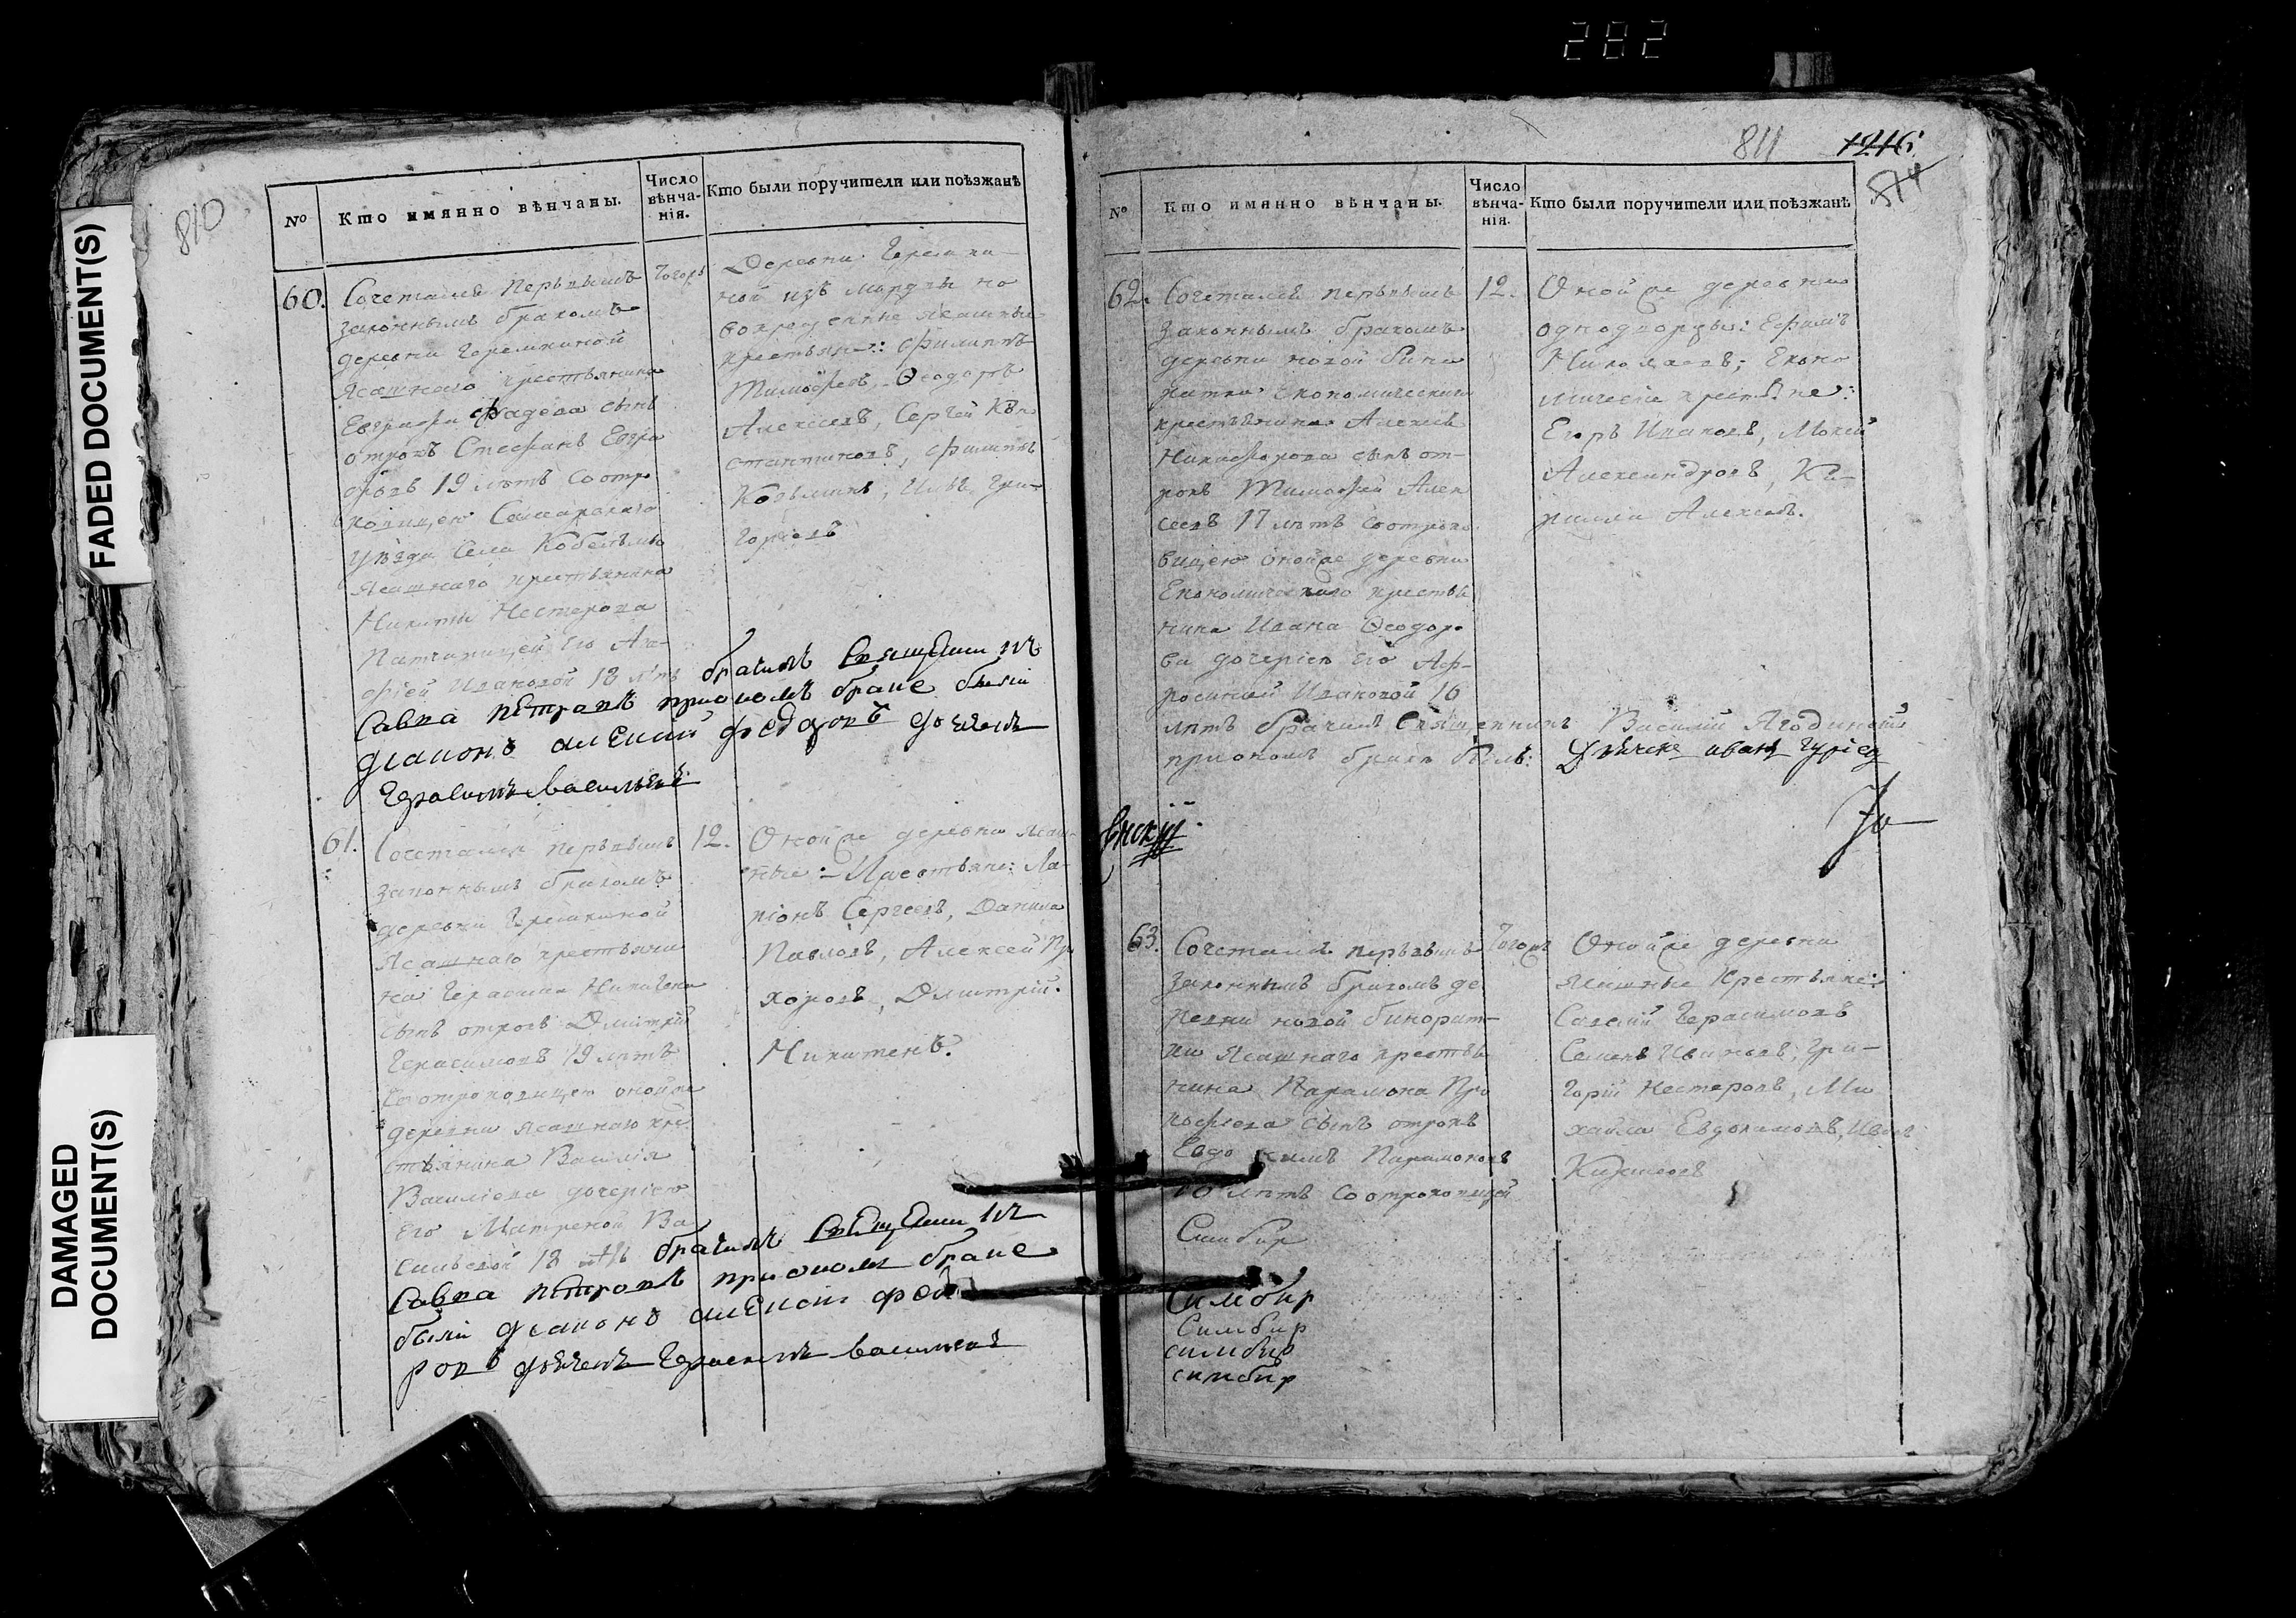 282
FADED DOCUMENT(S)
DAMAGED
DOCUMENT(S)
810
№
Кто имянно вѣнчаны.
Число
вѣнча-
нія.
Кто были поручители или поѣзжанѣ
60.
Сочетался первымъ
законнымъ бракомъ
деревни
Ясашнаго крестьянина
Евграфа Фадеева сынъ
отрокъ Стефанъ Евгра
фовъ 19 лѣтъ со отро
ковицею Самарскаго
уѣзда села
Ясашнаго крестьянина
Никиты Нестерова
его Ага-
фіей Ивановой 18 лѣтъ бракъ
Савва Петровъ приономъ браке были
диаконъ алексий федоровъ дьячекъ
Герасимъ васильевъ
тогожъ
Деревни
ной изъ мордвы но
вокрещенные ясашные
крестьяне: Филиппъ
Тимофеевъ, Ѳеодоръ
Алексеевъ, Сергей Кон
стантиновъ, Филиппъ
Козьминъ, Гри-
горьевъ
61.
Сочетался первымъ
законнымъ бракомъ
деревни
Ясашнаго крестьяни
на Герасима Никитина
сынъ отрокъ Дмитрій
Герасимовъ 19 лѣтъ
со отроковицею онойже
деревни ясашнаго кре
стьянина Василія
Васильева дочерью
его Матреной Ва
сильевой 18 лѣтъ
Савва Петровъ приономъ браке
были диаконъ алексий федо
ровъ дьячекъ Герасимъ васильевъ
12.
Онойже деревни ясаш-
ные: Крестьяне: Ла-
ріонъ Сергеевъ, Данила
Павловъ, Алексей Про
хоровъ, Дмитрій
Никитенъ.
811
1216
814
№
Кто имянно вѣнчаны.
Число
вѣнча-
нія.
Кто были поручители или поѣзжанѣ
62.
Сочетался первымъ
законнымъ бракомъ
деревни новой Бина
ратки Економическаго
крестьянина Алексея
Никифорова сынъ от-
рокъ Тимофей Алек
сеевъ 17 лѣтъ со отроко
вицею онойже деревни
Економическаго крестья
нина Ивана Ѳеодоро
ва дочерью его Аф-
росиніей Ивановой 16
лѣтъ бракъ Священникъ Василий Ягодинский
приономъ браке былъ: Дьячекъ иванъ
12.
Онойже деревни
однодворцы: Ефимъ
Николаевъ; Еконо
мическіе крестьяне:
Егоръ Ивановъ, Мокей
Александровъ, Ки-
рилла Алексеевъ.
63.
Сочетался первымъ
законнымъ бракомъ де
ревни новой бинорат-
ки Ясашнаго крестья
нина Парамона Про
кофьева сынъ отрокъ
Евдокимъ Парамоновъ
лѣтъ со отроковицей
Симбир
Симбир
Симбир
симбир
симбир
тогожъ
Онойже деревни
ясашные Крестьяне:
Савелий Герасимовъ
Семенъ Гри-
горій Нестеровъ, Ми
хайла Евдокимовъ, Иванъ